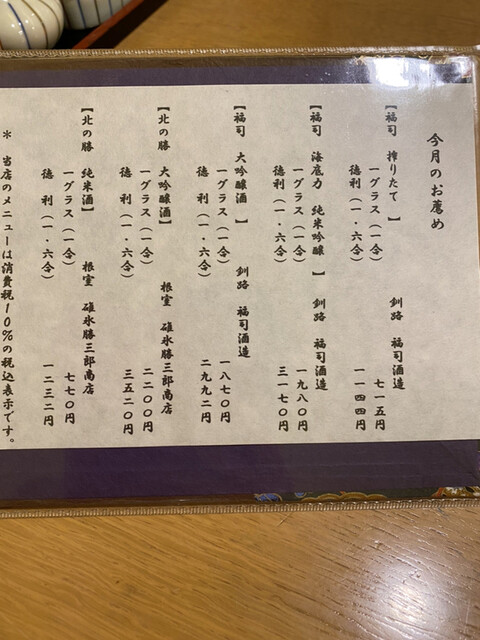 今月のお薦め
【福司 搾りたて 】 釧路 福司酒造
一グラス(一合) 七一五円
徳 利(一・六合) 一一四四円
【福司 海底力 純米吟醸 】 釧路 福司酒造
一グラス(一合) 一九八〇円
徳 利(一・六合) 三一七〇円
【福司 大吟醸酒 】 釧路 福司酒造
一グラス(一合) 一八七〇円
徳 利(一・六合) 二九九二円
【北の勝 大吟醸酒】 根室 碓氷勝三郎商店
一グラス(一合) 二二〇〇円
徳 利(一・六合) 三五二〇円
【北の勝 純米酒】 根室 碓氷勝三郎商店
一グラス(一合) 七七〇円
徳 利(一・六合) 一二三二円
* 当店のメニューは消費税10%の税込表示です。